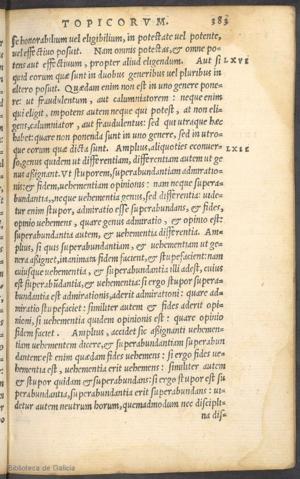 TOPICORVM. 383
se honorabilium uel eligibilium, in potestate uel potente,
uel effectiuo posuit. Nam omnis potestas, & omne po-
tens aut effectiuum, propter aliud eligendum. Aut si LXVI
quid eorum quæ sunt in duobus generibus uel pluribus in
altero posuit. Quædam enim non est in uno genere pone-
re: ut fraudulentum, aut calumniatorem: neque enim
qui eligit, impotens autem neque qui potest, at non eli-
gens, calumniator, aut fraudulentus: sed qui utraque hæc
habet: quare non ponenda sunt in uno genere, sed in utro-
que eorum quæ dicta sunt. Amplius, aliquoties econuer- LXIX
so, genus quidem ut differentiam, differentiam autem ut ge
nus assignant. Vt stuporem, superabundantiam admiratio-
nis: & fidem, uehementiam opinionis: nam neque supera-
bundantia, neque uehementia genus, sed differentia: uide-
tur enim stupor, admiratio esse superabundans, & fides,
opinio uehemens, quare genus admiratio, & opinio est:
superabundantia autem, & uehementia differentia. Am-
plius, si quis superabundantiam, & uehementiam ut ge-
nera assignet, inanimata fidem facient, & stupefacient: nam
cuiusque uehementia, & superabundantia illi adest, cuius
est superabūdantia, & uehementia: si ergo stupor supera-
bundantia est admirationis, aderit admirationi: quare ad-
miratio stupefaciet: similiter autem & fides aderit opi-
nioni, si uehementia quidem opinionis est: quare opinio
fidem faciet. Amplius, accidet sic assignanti uehemen-
tiam uehementem dicere, & superabundantiam superabun
dantem: est enim quædam fides uehemens: si ergo fides ue-
hementia est, uehementia erit uehemens: similiter autem
& stupor quidam & superabundans: si ergo stupor est su
perabundantia, superabundantia erit superabundans: ui-
detur autem neutrum horum, quemadmodum nec discipli-
na dis-
Biblioteca de Galicia